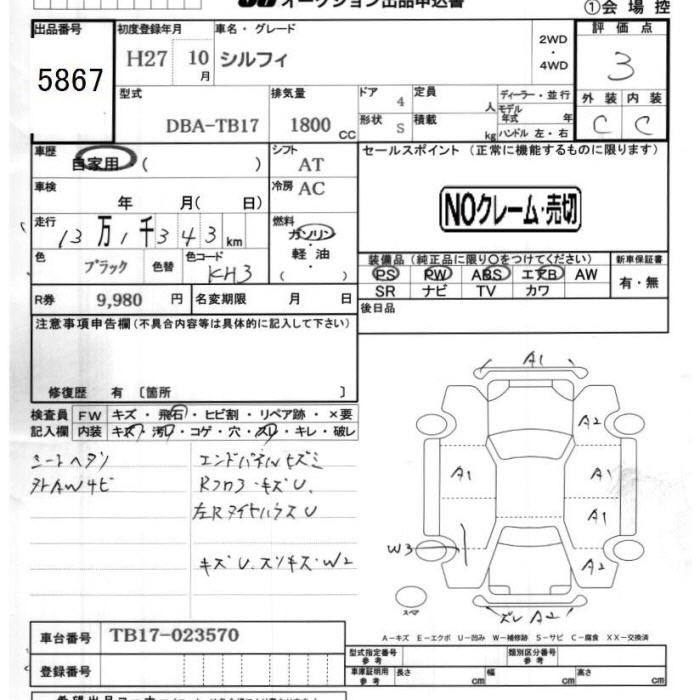 オークション出品申込書
①会場控
出品番号
5867
初度登録年月
H27 10月
車名・グレード
シルフィ
2WD
・
4WD
評価点
3
型式
DBA-TB17
排気量
1800 CC
ドア 4
形状 S
定員 人
積載 kg
ディーラー・並行
モデル年式 年
ハンドル 左・右
外装 内装
C C
車歴
自家用 ( )
シフト AT
冷房 AC
車検
年 月( 日)
走行
13万1千343km
燃料
ガソリン
・軽油・
( )
色
ブラック
色替
色コード
KH3
R券 9,980円
名変期限 月 日
セールスポイント(正常に機能するものに限ります)
NOクレーム・売切
装備品(純正品に限り○をつけてください)
PS PW ABS エアB AW
SR ナビ TV カワ
新車保証書
有・無
後日品
注意事項申告欄(不具合内容等は具体的に記入して下さい)
修復歴 有〔箇所 〕
検査員記入欄
FW キズ・飛石・ヒビ割・リペア跡・×要
内装 キズ・汚レ・コゲ・穴・スレ・キレ・破レ
シートヘタリ
外AW4ビ
エンドパネルヒズミ
Rフロア・キズU.
左RタイヤハウスU
キズU.スリキズ・W2
A1
A2
A1
A1
A1
W3
A2
ズレA2
スペア
A-キズ E-エクボ U-凹み W-補修跡 S-サビ C-腐食 XX-交換済
車台番号
TB17-023570
登録番号
型式指定番号 参考
類別区分番号 参考
車庫証明用 参考
長さ cm
幅 cm
高さ cm